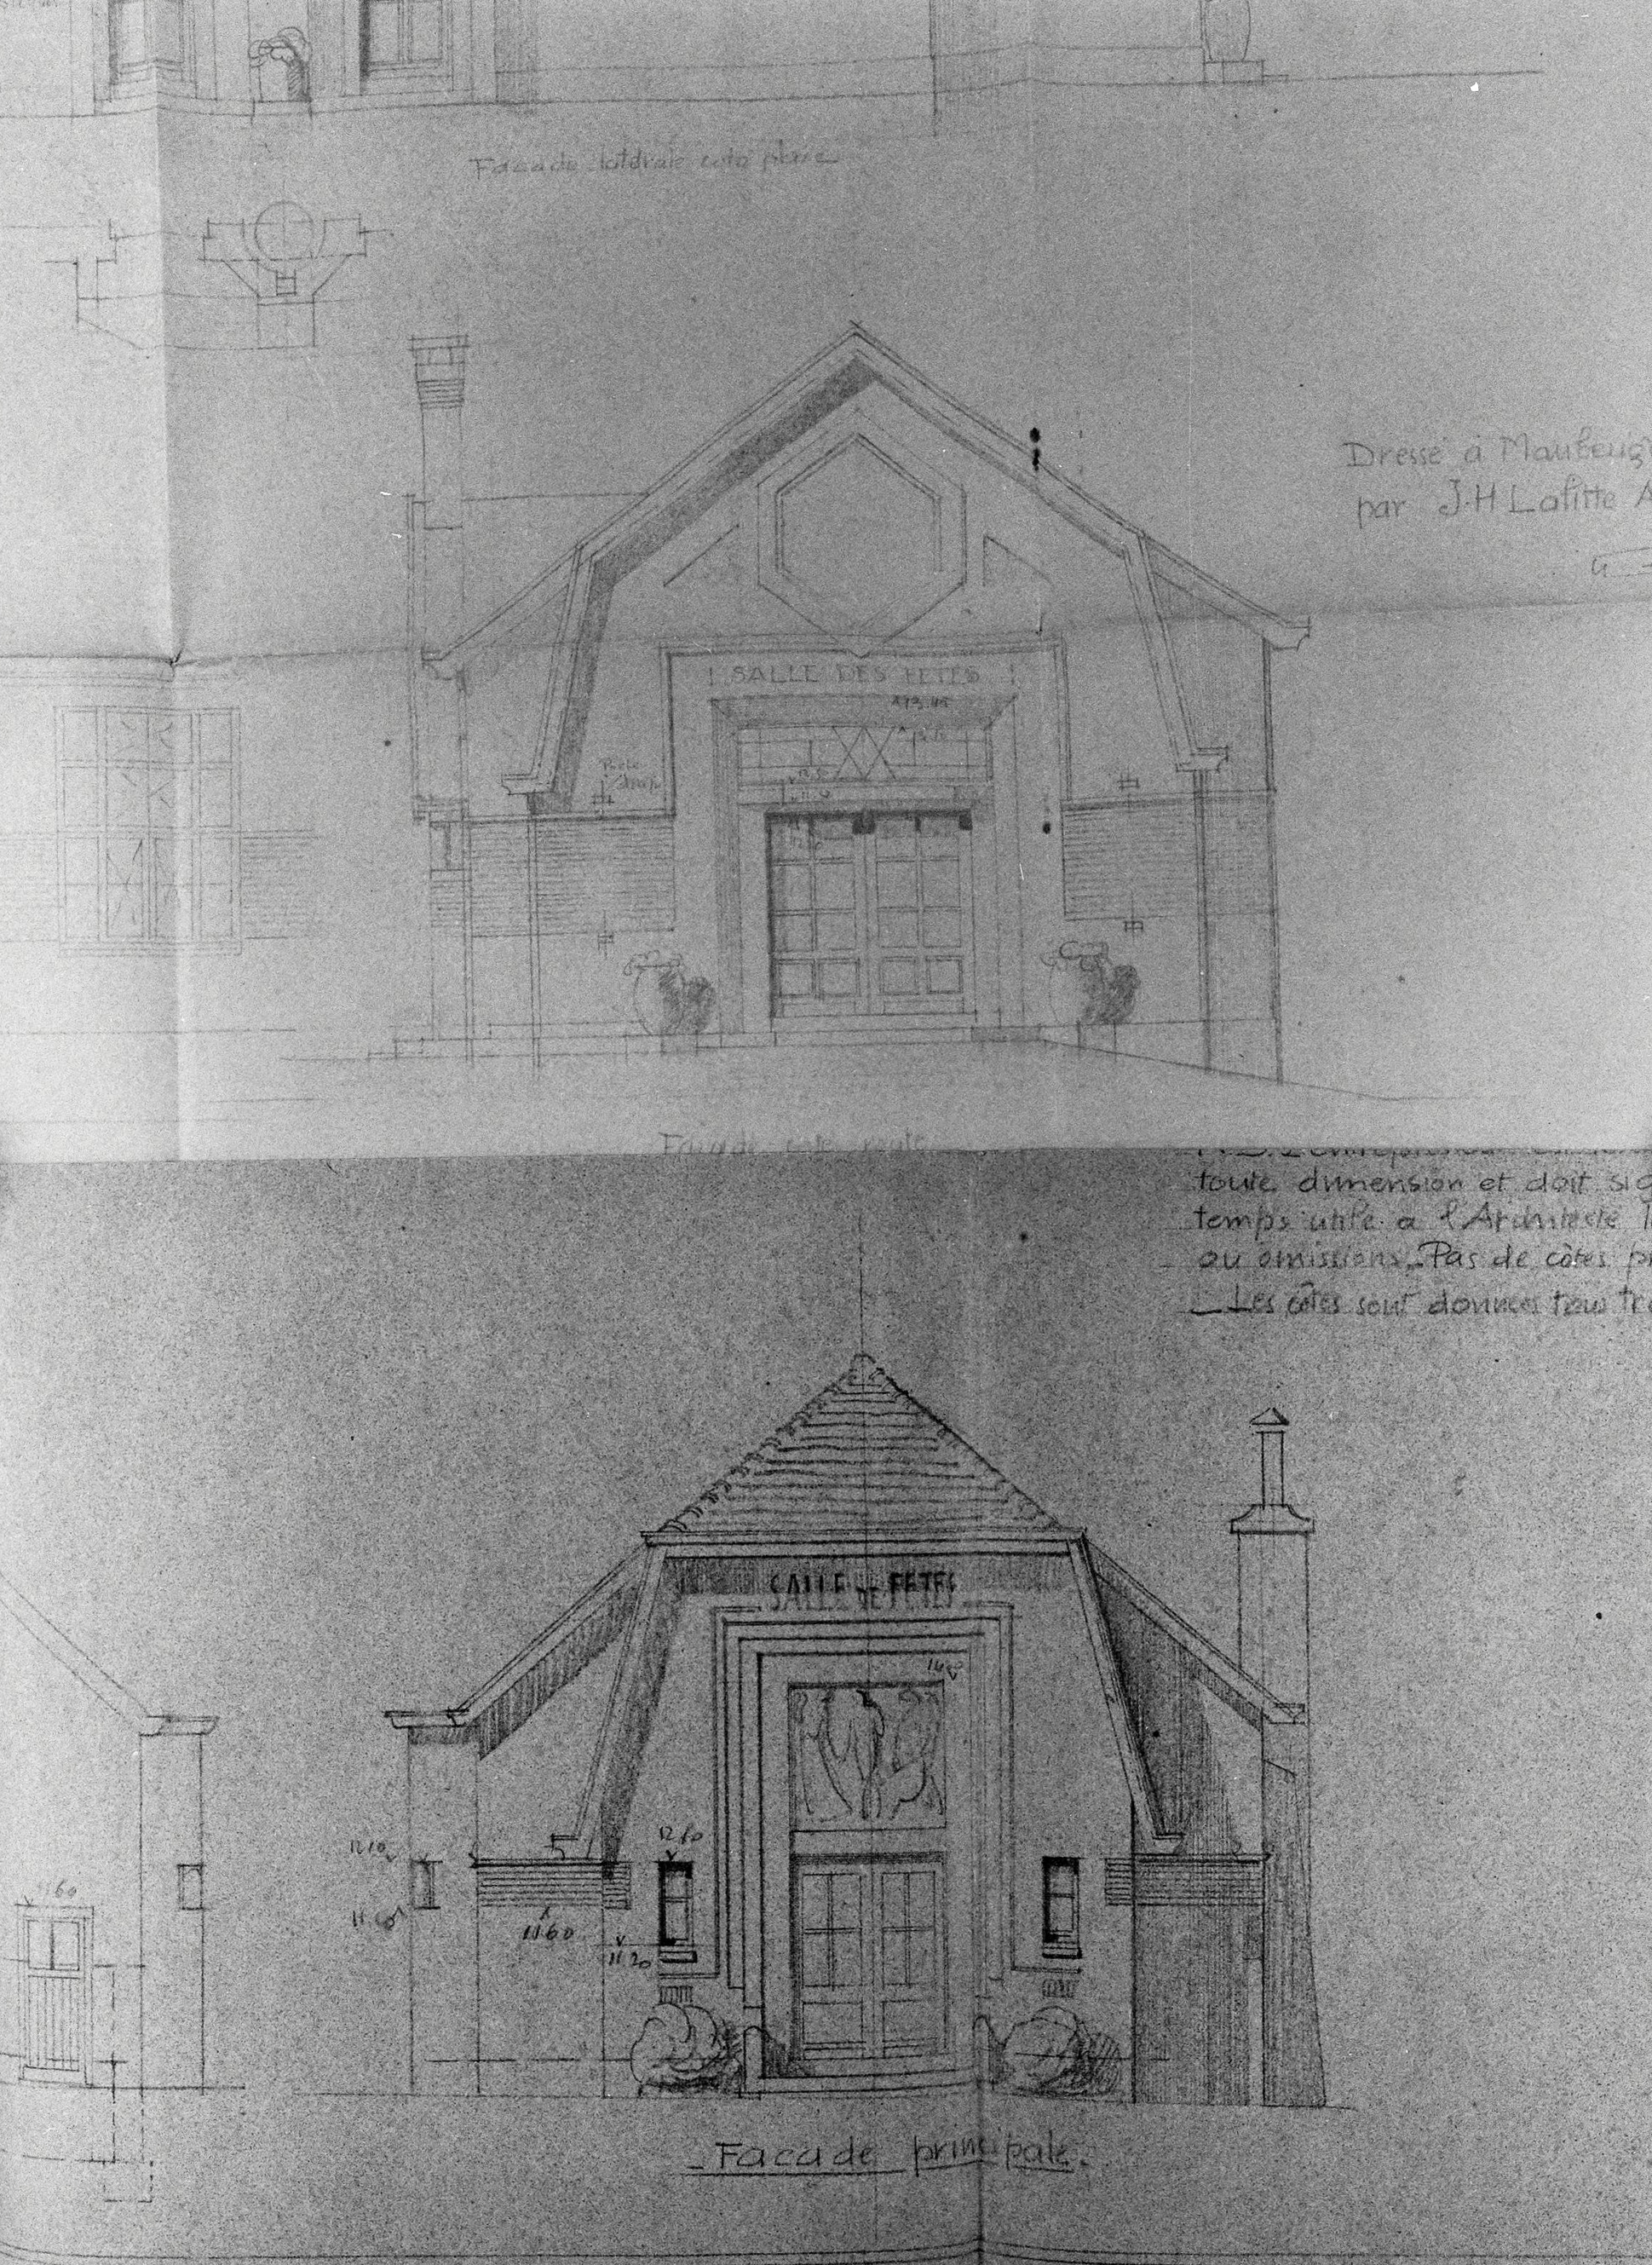 Facade latérale coté place
Dresse à Maubeuge
par J.H Lafitte A
SALLE DES FETES
Facade coté route
toute dimension et doit sig
temps utile a l'Architecte l
ou omissions. Pas de côtes pr
Les côtes sont données tou
SALLE DE FETES
14
12 60
12 10
11 60
11 60
11 60
11 20
Facade principale.